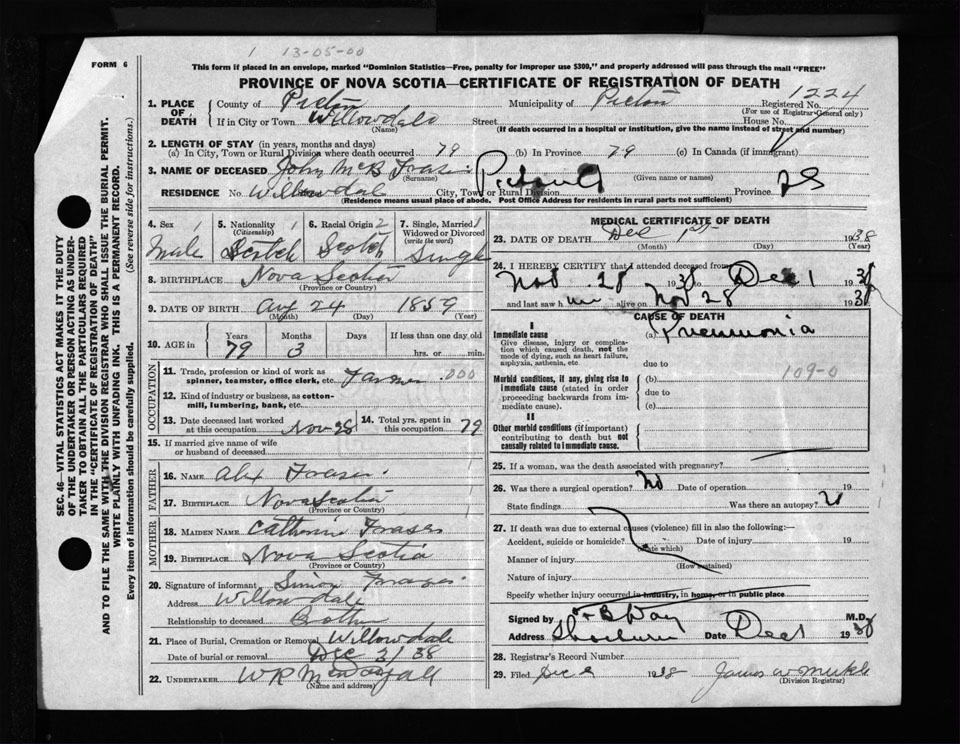 1 13-05-00
FORM 6
This form if placed in an envelope, marked "Dominion Statistics—Free, penalty for improper use $300," and properly addressed will pass through the mail "FREE"
PROVINCE OF NOVA SCOTIA—CERTIFICATE OF REGISTRATION OF DEATH
1224
1. PLACE OF DEATH
County of Pictou Municipality of Pictou Registered No.
(For use of Registrar-General only)
If in City or Town Willowdale Street House No.
(Name) (If death occurred in a hospital or institution, give the name instead of street and number)
2. LENGTH OF STAY (in years, months and days)
(a) In City, Town or Rural Division where death occurred 79 (b) In Province 79 (c) In Canada (if immigrant)
3. NAME OF DECEASED John McB Fraser
(Surname) (Given name or names)
RESIDENCE No. Willowdale City, Town or Rural Division Pictou Province NS
(Residence means usual place of abode. Post Office Address for residents in rural parts not sufficient)
4. Sex 1 5. Nationality 1 6. Racial Origin 2 7. Single, Married, 1
(Citizenship) Widowed or Divorced
(write the word)
Male Scotch Scotch Single
8. BIRTHPLACE Nova Scotia
(Province or Country)
9. DATE OF BIRTH Aug 24 1859
(Month) (Day) (Year)
10. AGE in Years Months Days If less than one day old
79 3 hrs. or min.
OCCUPATION
11. Trade, profession or kind of work as
spinner, teamster, office clerk, etc. Farmer 000
12. Kind of industry or business, as cotton-
mill, lumbering, bank, etc.
13. Date deceased last worked 14. Total yrs. spent in
at this occupation Nov 28 this occupation 79
15. If married give name of wife
or husband of deceased
FATHER
16. Name Alex Fraser
17. Birthplace Nova Scotia
(Province or Country)
MOTHER
18. Maiden Name Catherine Fraser
19. Birthplace Nova Scotia
(Province or Country)
20. Signature of informant Simon Fraser
Address Willowdale
Relationship to deceased Brother
21. Place of Burial, Cremation or Removal Willowdale
Date of burial or removal Dec 2/38
22. Undertaker W R
(Name and address)
MEDICAL CERTIFICATE OF DEATH
23. DATE OF DEATH Dec 1st 1938
(Month) (Day) (Year)
24. I HEREBY CERTIFY that I attended deceased from
Nov. 28 1938 to Dec 1 1938
and last saw h im alive on Nov 28 1938
CAUSE OF DEATH
I
Immediate cause (a) Pneumonia
Give disease, injury or complica-
tion which caused death, not the
mode of dying, such as heart failure,
asphyxia, asthenia, etc.
due to
109-0
Morbid conditions, if any, giving rise to (b)
immediate cause (stated in order due to
proceeding backwards from im-
mediate cause). (c)
II
Other morbid conditions (if important)
contributing to death but not
causally related to immediate cause.
25. If a woman, was the death associated with pregnancy?
26. Was there a surgical operation? No Date of operation 19
State findings Was there an autopsy?
27. If death was due to external causes (violence) fill in also the following:—
Accident, suicide or homicide? Date of injury 19
(State which)
Manner of injury
(How sustained)
Nature of injury
Specify whether injury occurred in industry, in home, or in public place
Signed by Day M.D.
Address Date Dec 1 1938
28. Registrar's Record Number
29. Filed Dec 1938 James W
(Division Registrar)
SEC. 46—VITAL STATISTICS ACT MAKES IT THE DUTY
OF THE UNDERTAKER OR PERSON ACTING AS UNDER-
TAKER TO OBTAIN ALL THE PARTICULARS REQUIRED
IN THE "CERTIFICATE OF REGISTRATION OF DEATH"
AND TO FILE THE SAME WITH THE DIVISION REGISTRAR WHO SHALL ISSUE THE BURIAL PERMIT.
WRITE PLAINLY WITH UNFADING INK. THIS IS A PERMANENT RECORD.
Every item of information should be carefully supplied. (See reverse side for instructions.)